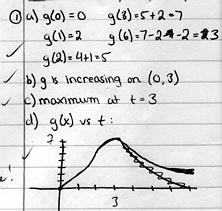 ① a) g(0) = 0 g(3) = 5 + 2 = 7
g(1) = 2 g(6) = 7 - 2 - 2 = 3
g(2) = 4 + 1 = 5
b) g is increasing on (0, 3)
c) maximum at t = 3
d) g(x) vs t:
7
3